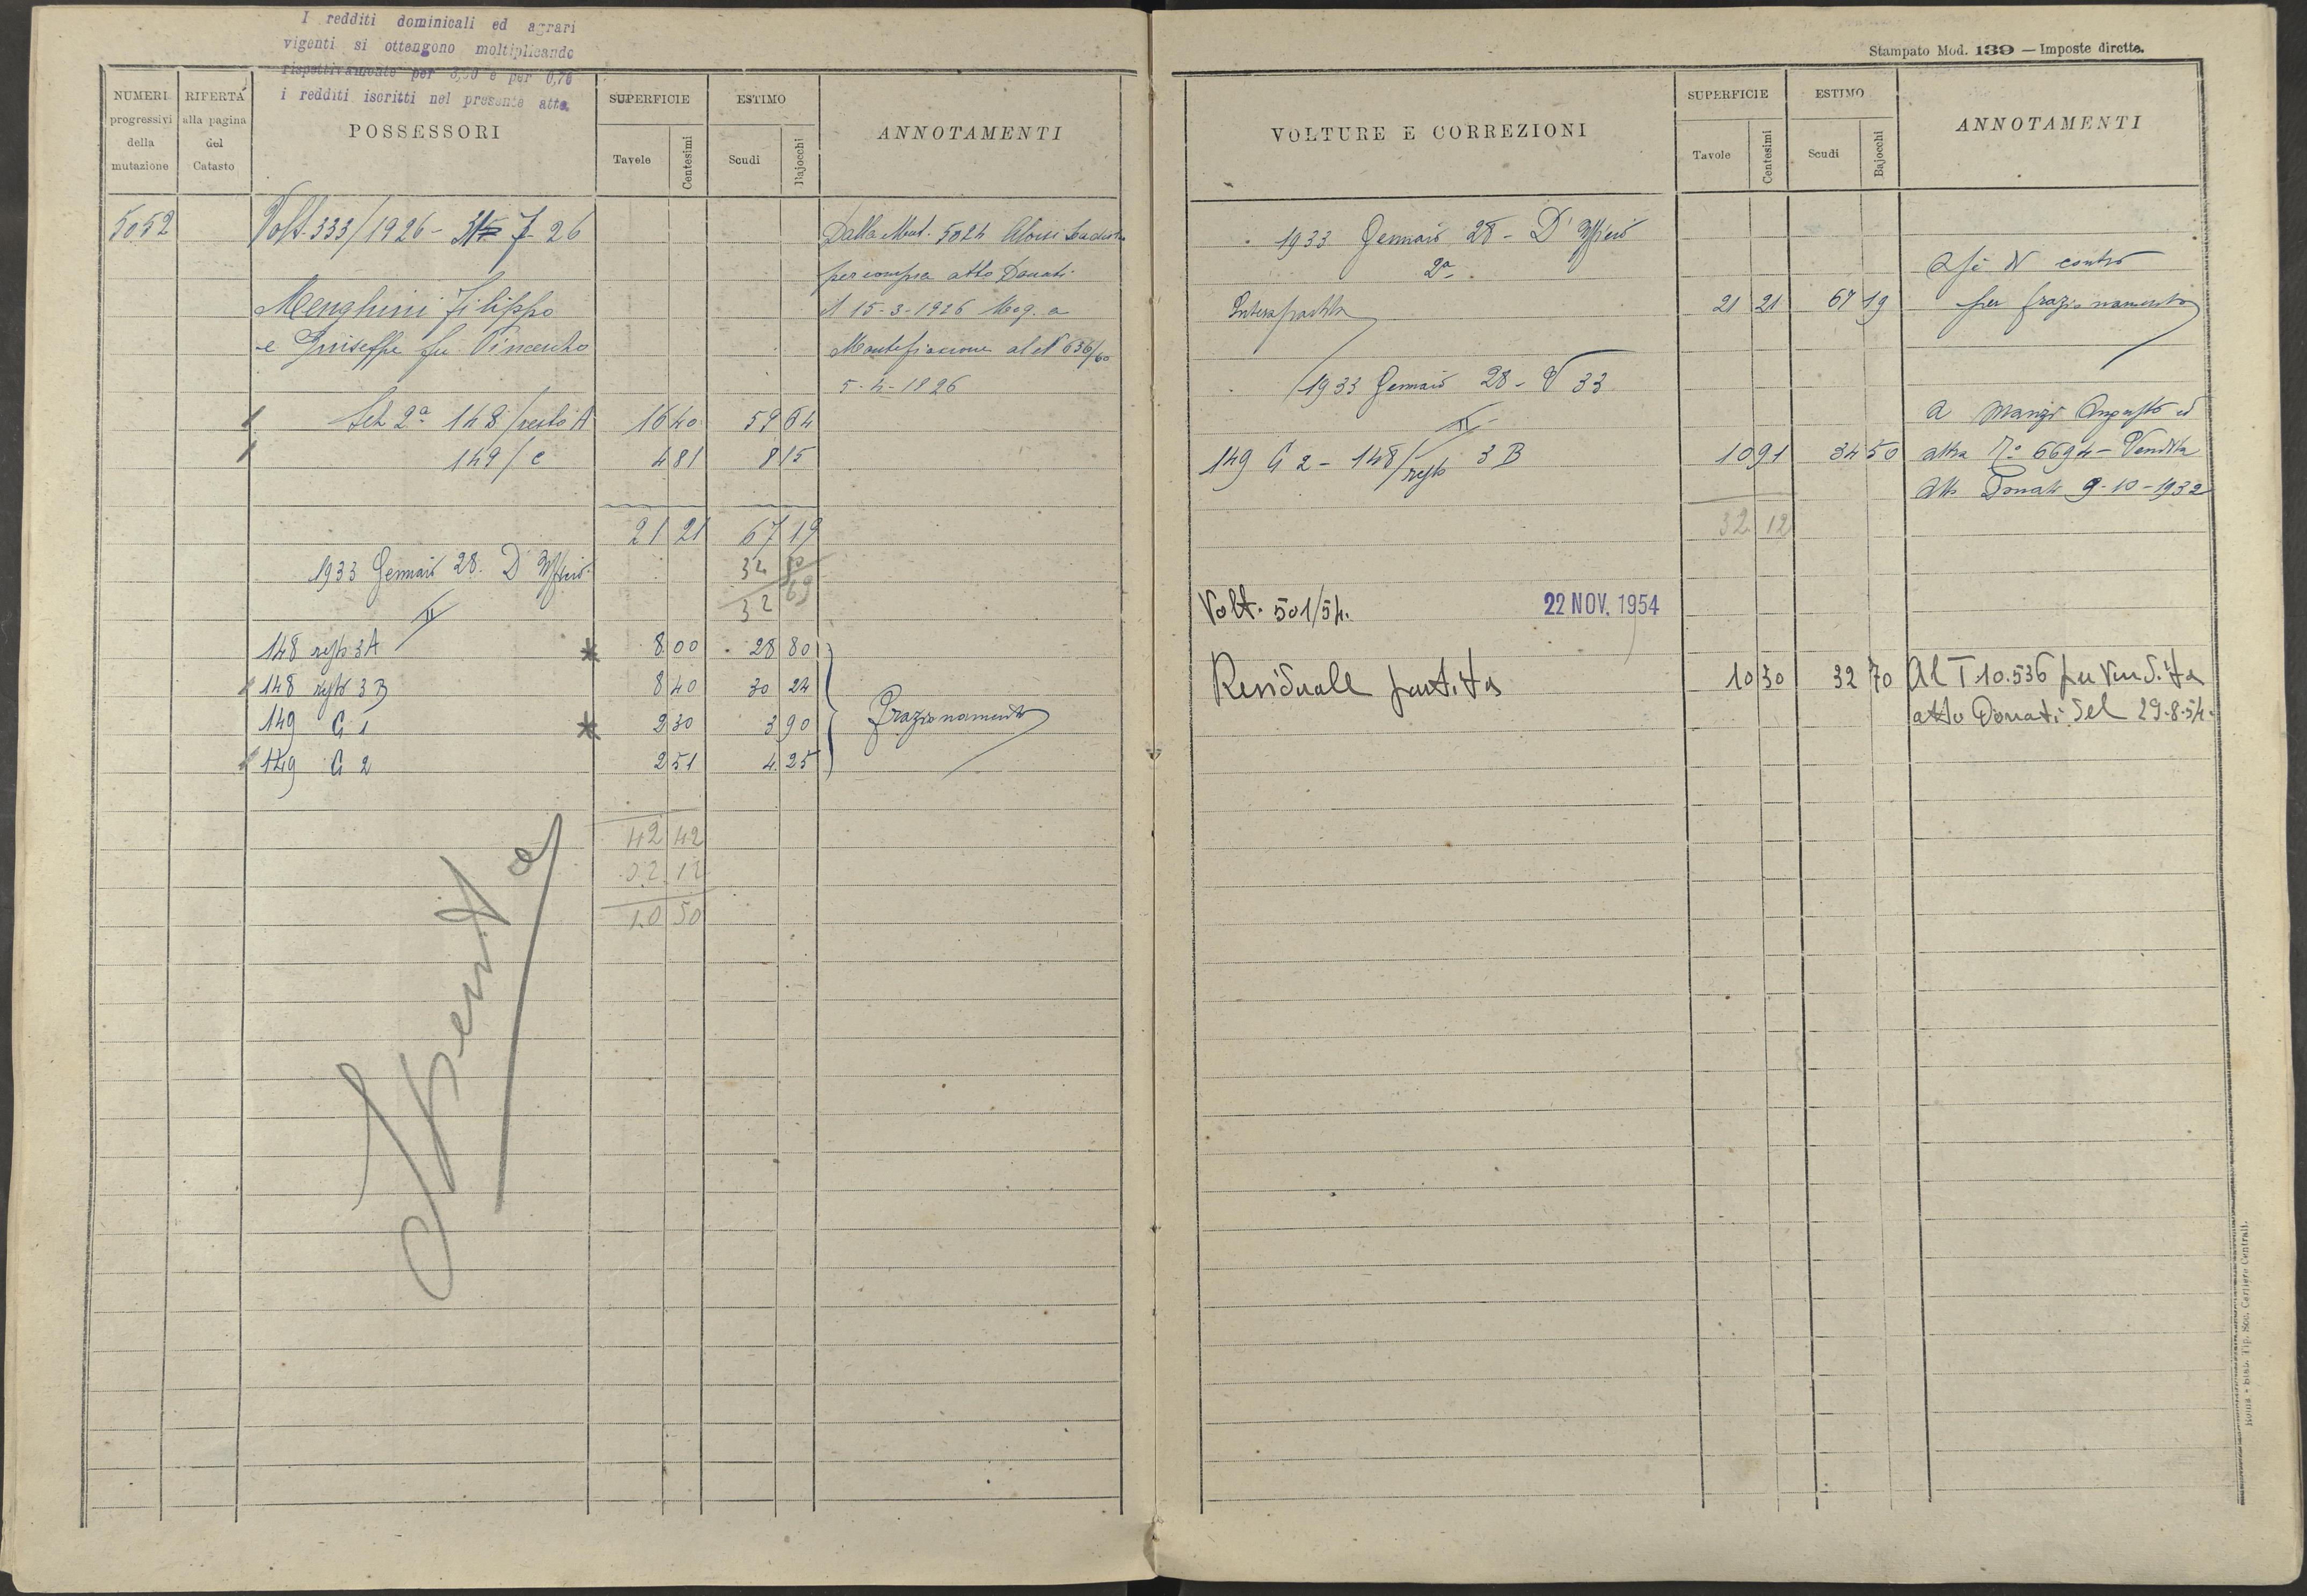 I redditi dominicali ed agrari
vigenti si ottengono moltiplicando
rispettivamente per e per 0,76
i redditi iscritti nel presente atto.
NUMERI progressivi della mutazione
RIFERTA alla pagina del Catasto
POSSESSORI
SUPERFICIE
Tavole Centesimi
ESTIMO
Scudi Bajocchi
ANNOTAMENTI
5052 Volt. 333/1926 - 7 26
Dalla Mut. 5024 Aloisi
per compra atto Donati
Menghini Filippo
il 15-3-1926 Reg. a
e Giuseppe fu Vincenzo
Montefiascone al N 636/60
5-4-1926
Sez 2a 148/resto A 16 40 59 04
149/c 4 81 8 15
21 21 67 19
1933 Gennaio 28. D'Ufficio
34 50
32 69
II
148 resto 3A 8.00 28 80
148 resto 3B 8 40 30 24
149 C 1 2 30 3 90 Frazionamento
149 C 2 2 51 4.25
42 42
32 12
10 50
Spenta
Stampato Mod. 139 — Imposte dirette.
VOLTURE E CORREZIONI
SUPERFICIE
Tavole Centesimi
ESTIMO
Scudi Bajocchi
ANNOTAMENTI
1933 Gennaio 28 - D'Ufficio
2a
A sé di contro
Intera partita 21 21 67 19 per frazionamento
1933 Gennaio 28 - V 33
II
A Manzi Augusto ed
149 C 2 - 148/resto 3 B 10 91 34 50 altra No 6694 - Vendita
atto Donati 9-10-1932
32 12
Volt. 501/54. 22 NOV. 1954
Residuale partita 10 30 32 70 Al T 10.536 per vendita
atto Donati del 29-8-54.
Roma - Stab. Tip. Soc. Cartiere Centrali.